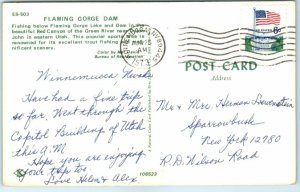 ES-503
FLAMING GORGE DAM
Fishing below Flaming Gorge Dam and in the
beautiful Red Canyon of the Green River near
John in eastern Utah. This popular sports area is
renowned for its excellent trout fishing and mag-
nificent scenery.
Color by
Bureau of Reclamation
Winnemucca Nevada
Have had a fine trip
so far. Went through the
Capitol Building of Utah
this A.M.
Hope you are enjoying
your trip too
Love Helen & Alex
106523
POST CARD
Address
Mr & Mrs. Herman
Sparrowbush
New York 12780
R.D. Wilson Road